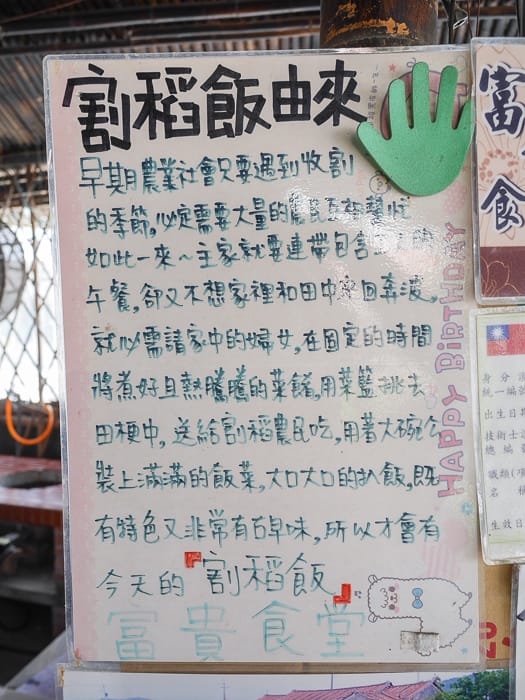 割稻飯由來
早期農業社會只要遇到收割
的季節,必定需要大量的農民互相幫忙
如此一來~主家就要連帶包
午餐,卻又不想家裡和田中來回奔波,
就必需請家中的婦女,在固定的時間
將煮好且熱騰騰的菜餚,用菜籃挑去
田梗中,送給割稻農民吃,用著大碗公
裝上滿滿的飯菜,大口大口的扒飯,既
有特色又非常有古早味,所以才會有
今天的『割稻飯』
富貴食堂
HAPPY BiRTHDAY
富
食
身分
統一編
出生日
技術士
總編
職類(項
名稱
生效日